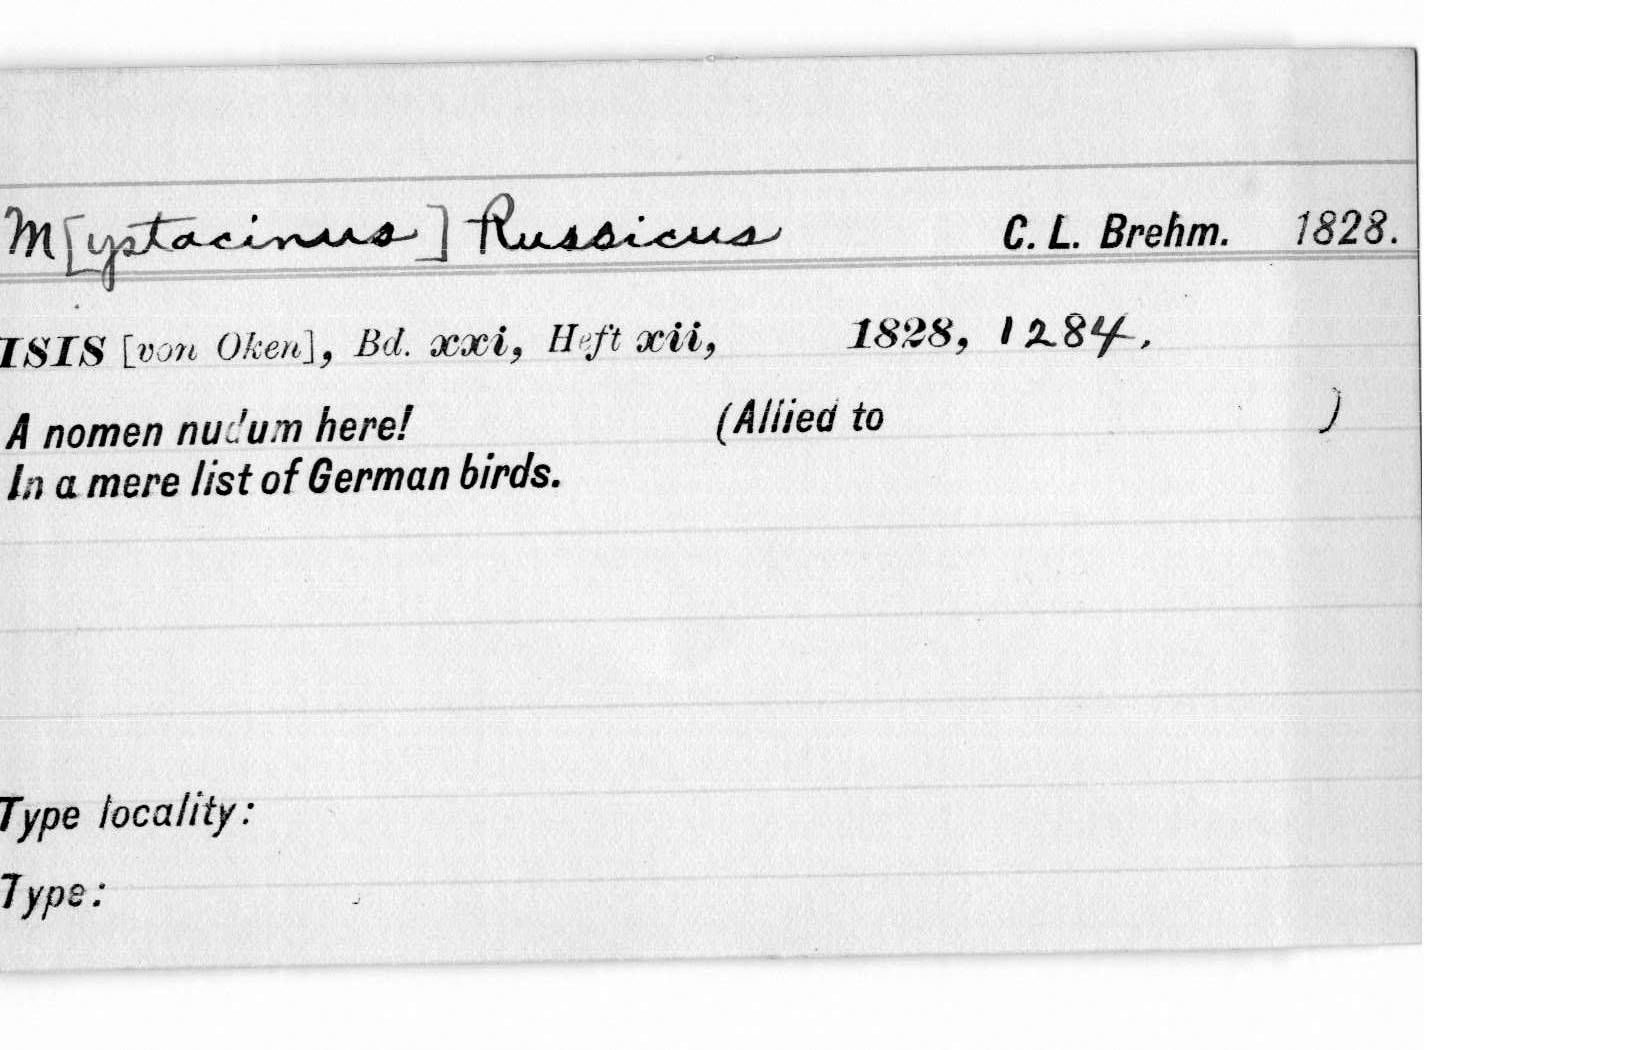 M[ystacinus] Russicus C. L. Brehm. 1828.
ISIS [von Oken], Bd. xxi, Heft xii, 1828, 1284.
A nomen nudum here! (Allied to )
In a mere list of German birds.
Type locality:
Type: